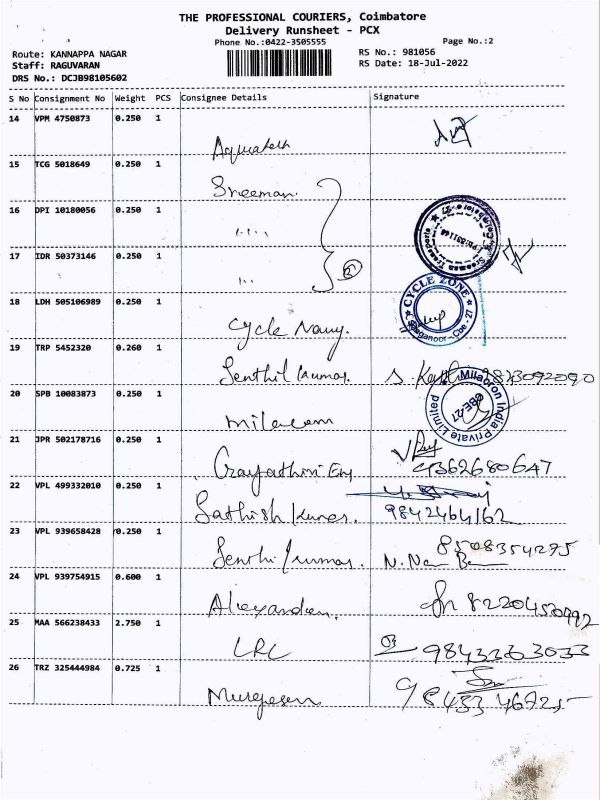 THE PROFESSIONAL COURIERS, Coimbatore
Delivery Runsheet - PCX
Phone No.:0422-3505555 Page No.:2
Route: KANNAPPA NAGAR RS No.: 981056
Staff: RAGUVARAN RS Date: 18-Jul-2022
DRS No.: DCJB98105602
S No Consignment No Weight PCS Consignee Details Signature
14 VPM 4750873 0.250 1
Aquatech
15 TCG 5018649 0.250 1
Sreeman
16 DPI 10180056 0.250 1
17 IDR 50373146 0.250 1
18 LDH 505106989 0.250 1
CYCLE ZONE
Cycle Navy.
19 TRP 5452320 0.260 1
Senthil kumar.
20 SPB 10083873 0.250 1
Milacron India Private Limited
CBE-27
milacam
21 JPR 502178716 0.250 1
Gayathiri Eng 9362680647
22 VPL 499332010 0.250 1
Sathish kumar. 9842464162
23 VPL 939658428 0.250 1
8508354295
Senthil kumar.
24 VPL 939754915 0.600 1
Alexander.
25 MAA 566238433 2.750 1
LRC 9843363033
26 TRZ 325444984 0.725 1
Murgesan